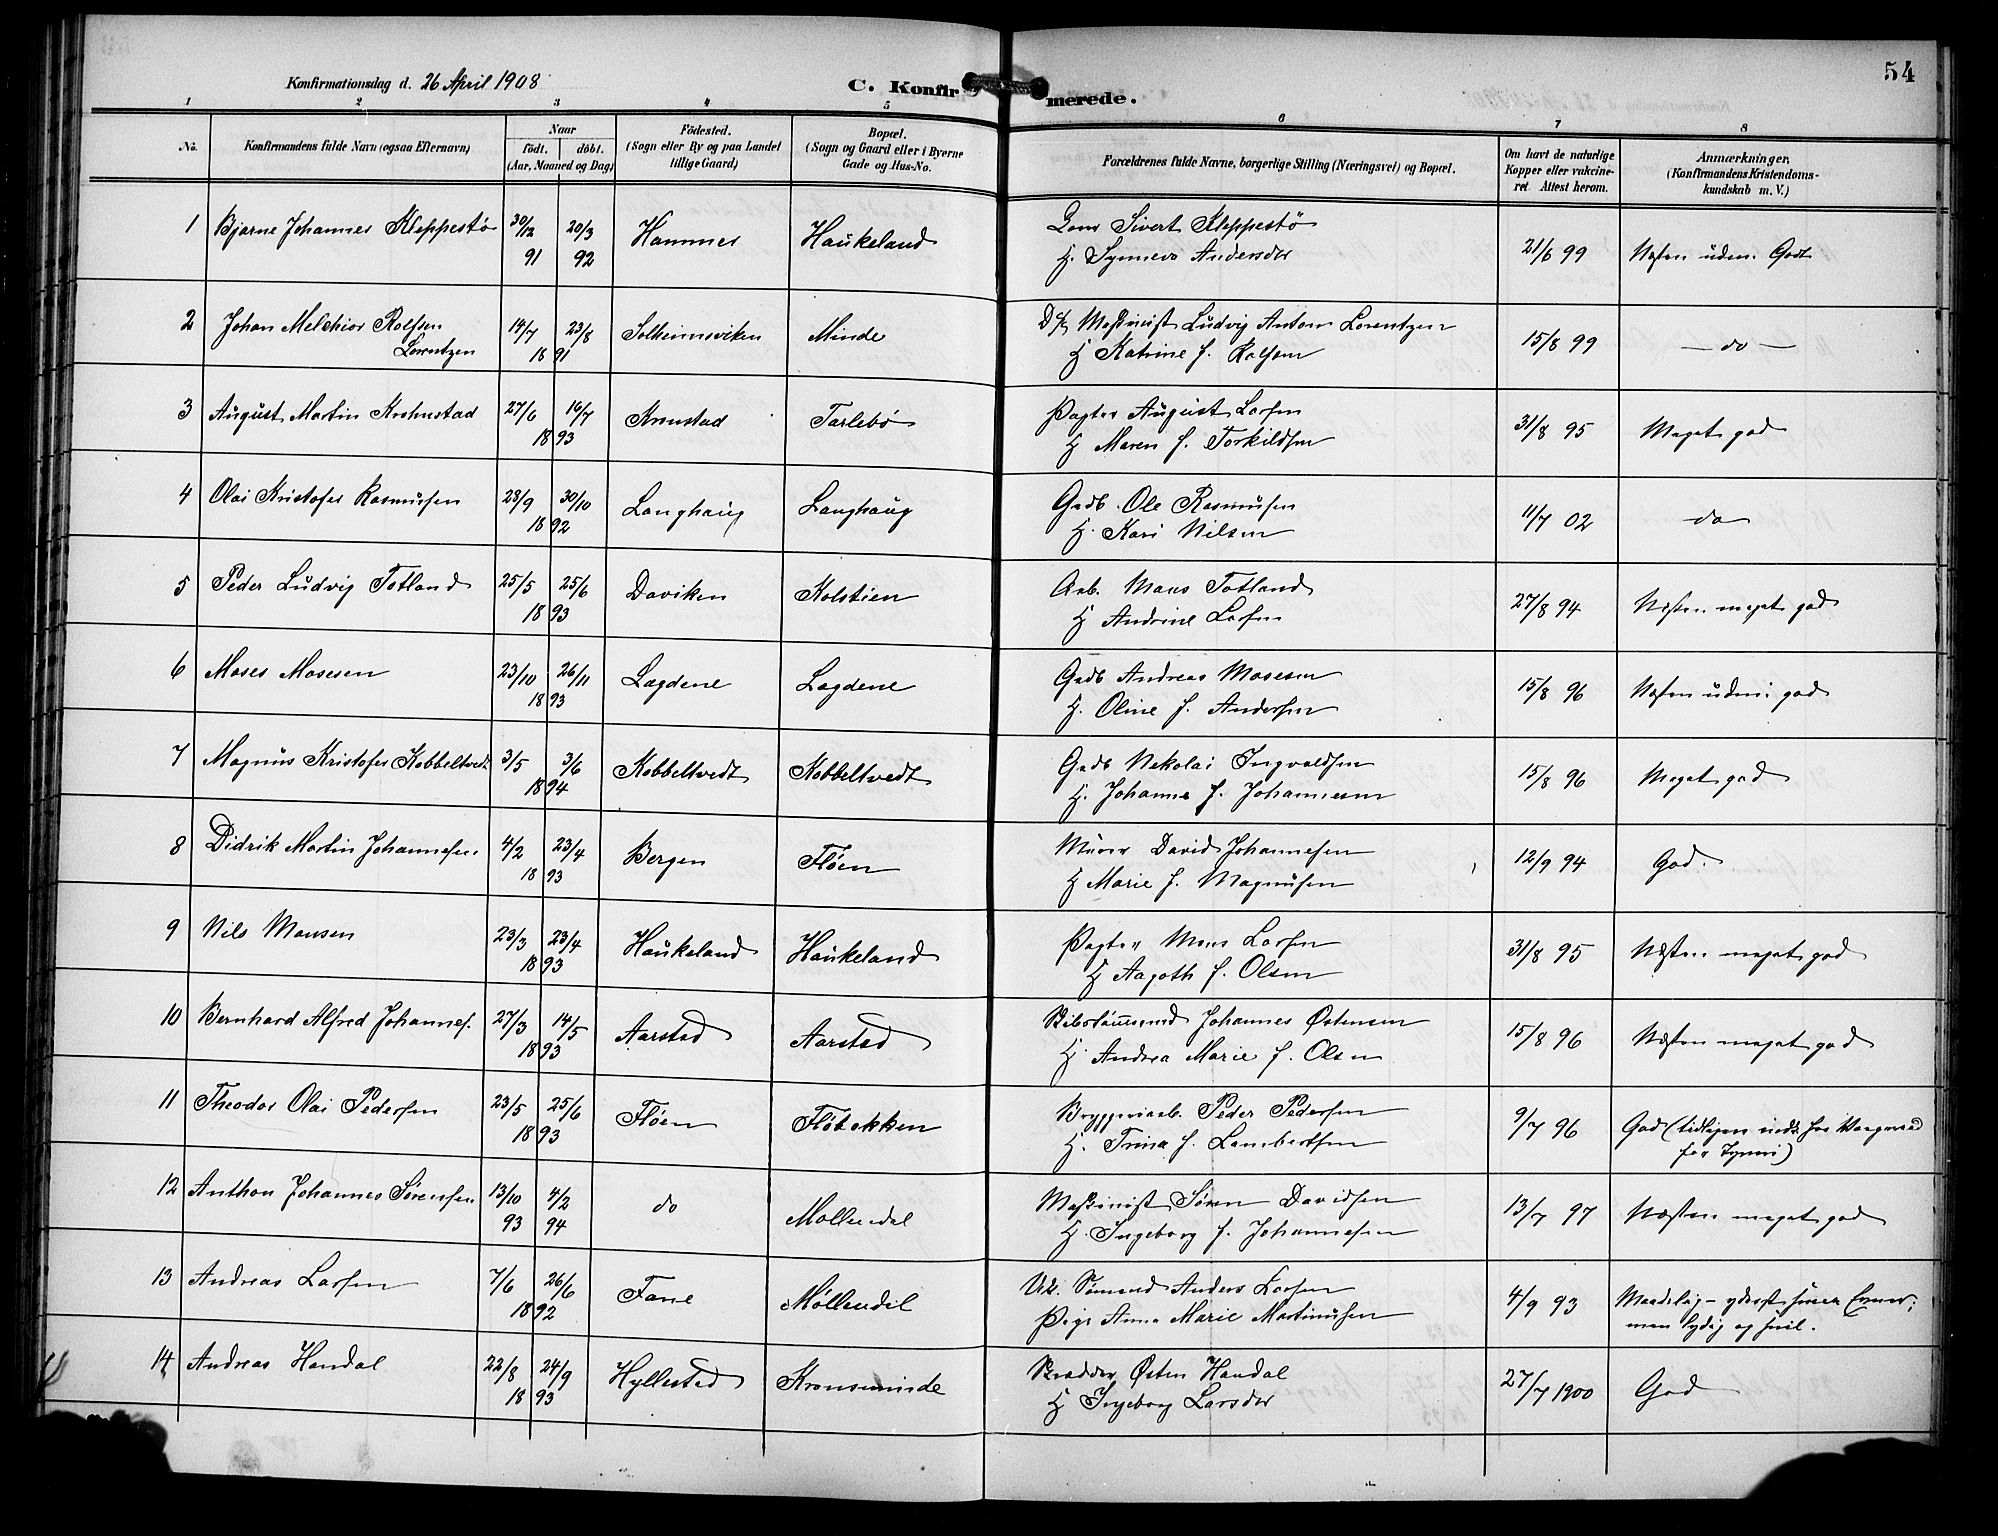 54
Konfirmationsdag d. 26 April 1908
C. Konfirmerede.
1 2 3 4 5 6 7 8
No.
Konfirmandens fulde Navn (ogsaa Efternavn)
Naar
födt. döbt.
(Aar, Maaned og Dag)
Födested.
(Sogn eller By og paa Landet
tillige Gaard)
Bopæl.
(Sogn og Gaard eller i Byerne
Gade og Hus-No.
Forældrenes fulde Navne, borgerlige Stilling (Næringsvei) og Bopæl.
Om havt de naturlige
Kopper eller vakcine-
ret. Attest herom.
Anmærkninger.
(Konfirmandens Kristendoms-
kundskab m. V.)
1 Bjarne Johannes Kleppestø 30/12 20/3 Hammer Haukeland Sivert Kleppestø 21/6 99 Næsten udm. Godt
91 92 H. Synneva Andersdr
2 Johan Melchior Rolfsen 14/7 23/8 Solheimsviken Minde Maskinist Ludvig Anton Lorentzen 15/8 99 — do —
Lorentzen 18 91 H Katrine f. Rolfsen
3 August Martin Kronstad 27/6 16/7 Kronstad Tarlebø Pagter August Larsen 31/8 95 Meget god
18 93 H Maren f. Torkildsen
4 Olai Kristofer Rasmussen 23/9 30/10 Langhaug Langhaug Gadb. Ole Rasmussen 11/7 02 do
18 92 H. Kari Nilsen
5 Peder Ludvig Totland 25/5 25/6 Daviken Kolstien Arb. Mons Totland 27/8 94 Næsten meget god
18 93 H Andrine Larsen
6 Moses Mosesen 23/10 26/11 Lægdene Lægdene Gadb Andreas Mosesen 15/8 96 Næsten udm: god
18 93 H. Oline f. Andersen
7 Magnus Kristofer Kobbeltvedt 3/5 3/6 Kobbeltvedt Kobbeltvedt Gadb Nekolai Ingvaldsen 15/8 96 Meget god
18 94 H. Johanne f. Johannesen
8 Didrik Martin Johannesen 4/2 23/4 Bergen Fløen Murer David Johannesen 12/9 94 God.
18 93 H Marie f. Magnusen
9 Nils Monsen 23/3 23/4 Haukeland Haukeland Pagter Mons Larsen 31/8 95 Næsten meget god
18 93 H Aagoth f. Olsen
10 Bernhard Alfred Johannes. 27/3 14/5 Aarstad Aarstad Johannes Østensen 15/8 96 Næsten meget god
18 93 H. Andrea Marie f. Olsen
11 Theodor Olai Pedersen 23/5 25/6 Fløen Fløbakken Bryggeriarb. Peder Pedersen 9/7 96 God (tidligere indsk. hos
18 93 H. Trina f. Lambertsen for
12 Anthon Johannes Sørensen 13/10 4/2 do Møllendal Maskinist Søren Davidsen 13/7 97 Næsten meget god
93 94 H. Ingeborg f. Johannesen
13 Andreas Larsen 7/6 26/6 Fane Møllendal Uk. Sømand Anders Larsen 4/9 93 Maadelig – yderst svær
18 92 Pige Anna Marie Martinusen men lydig og snil.
14 Andreas Handal 22/8 24/9 Hyllestad Kronsminde Skrædder Østen Handal 27/7 1900 God
18 93 H Ingeborg Larsdr